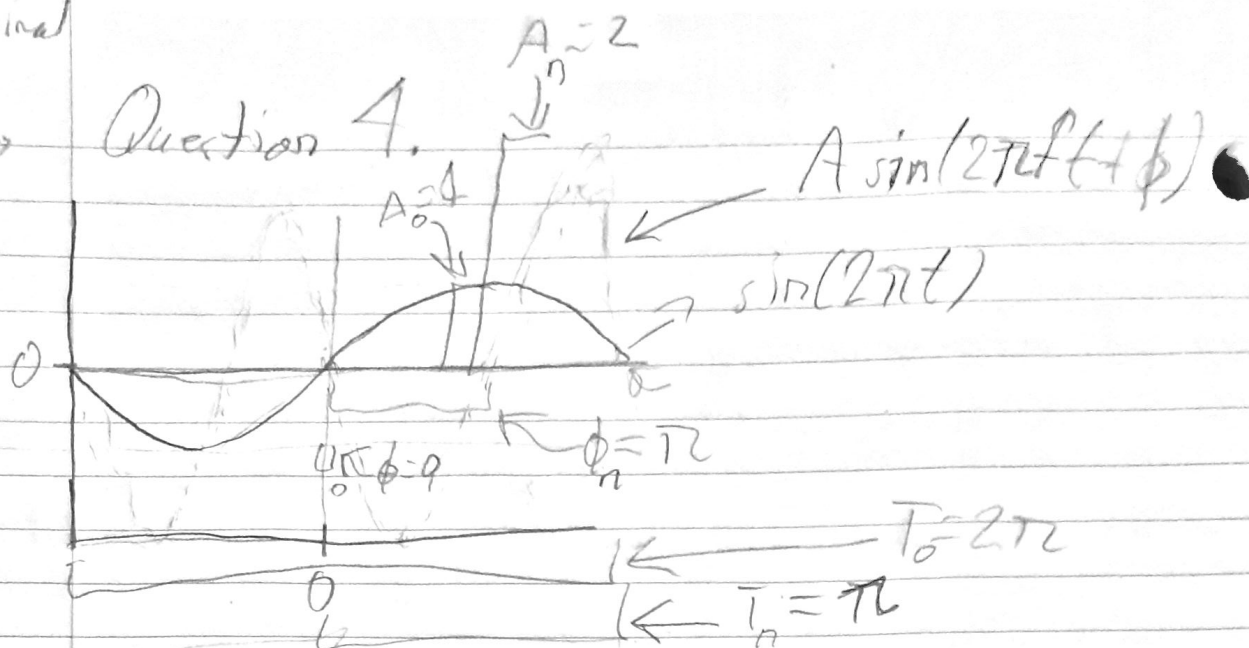 A_n = 2
Question 4.
A sin(2πft + ϕ)
A_0 = 1
sin(2πt)
0
ϕ_n = π
T_0 = 2π
0
T_n = π